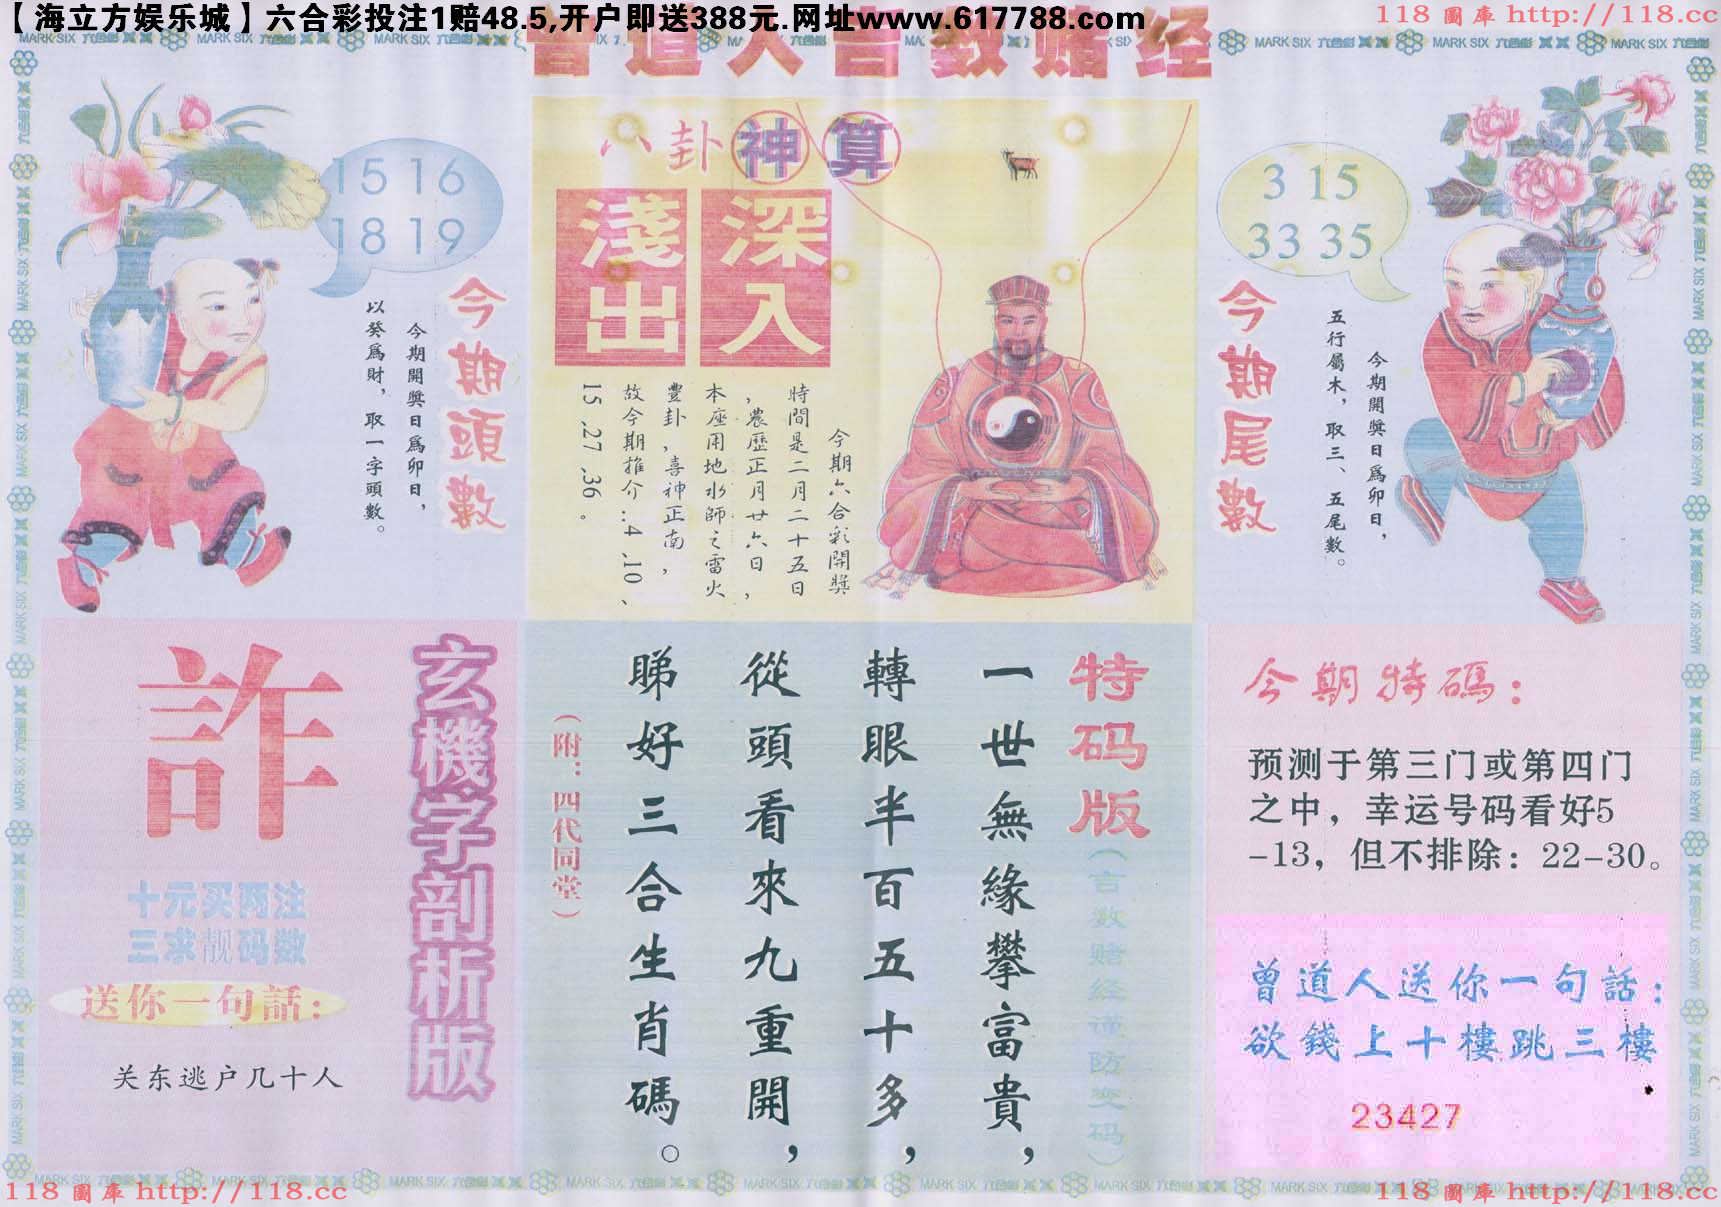 【海立方娱乐城】六合彩投注1赔48.5,开户即送388元.网址www.617788.com
118 圖庫 http://118.cc
曾道人言数赌经
15 16
18 19
今期頭數
今期開獎日爲卯日，
以癸爲財，取一字頭數。
八卦神算
深入
淺出
今期六合彩開獎
時間是二月二十五日
，農歷正月廿六日，
本座用地水師之雷火
豐卦，喜神正南，
故今期推介：4、10、
15、27、36。
3 15
33 35
今期尾數
今期開獎日爲卯日，
五行屬木，取三、五尾數。
玄機字剖析版
詐
十元买两注
三求靓码数
送你一句話：
关东逃户几十人
特码版
（言数赌经谨防变码）
一世無緣攀富貴，
轉眼半百五十多，
從頭看來九重開，
睇好三合生肖碼。
（附：四代同堂）
今期特碼：
预测于第三门或第四门
之中，幸运号码看好5
-13，但不排除：22-30。
曾道人送你一句話：
欲錢上十樓跳三樓
23427
118 圖庫 http://118.cc
118 圖庫 http://118.cc